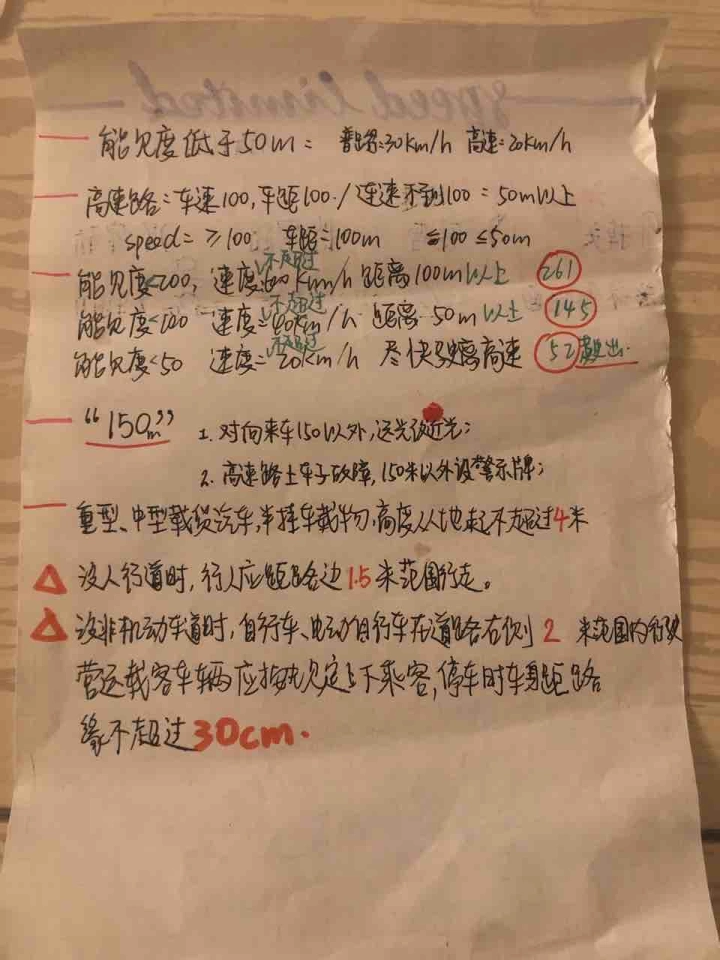 speed limited
能见度低于50m: 普路=30km/h 高速=20km/h
高速路=车速100,车距100./车速不到100=50m以上
speed= ≥100 车距=100m ≤100 ≤50m
不超过
能见度<200, 速度=60km/h 距离100m以上 261
不超过
能见度<100 速度=40km/h 距离 50m以上 145
不超过
能见度<50 速度=20km/h 尽快驶离高速 52
“150m” 1. 对向来车150以外,远光改近光;
2. 高速路上车子故障,150米以外设警示牌;
重型、中型载货汽车,半挂车载物,高度从地起不超过4米
没人行道时,行人应距路边1.5米范围行走。
没非机动车道时,自行车、电动自行车在道路右侧2米范围内行驶
营运载客车辆应按规定上下乘客,停车时车身距路
缘不超过30cm.